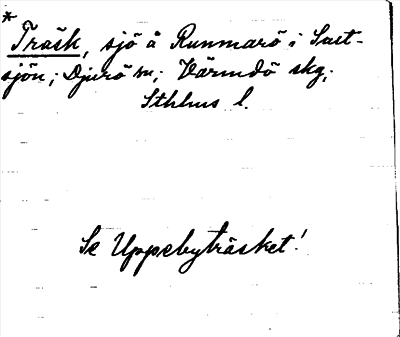 *
Träsk, sjö å Runmarö i Salt-
sjön; Djurö sn; Värmdö skg;
Sthlms l.
Se Uppebyträsket!